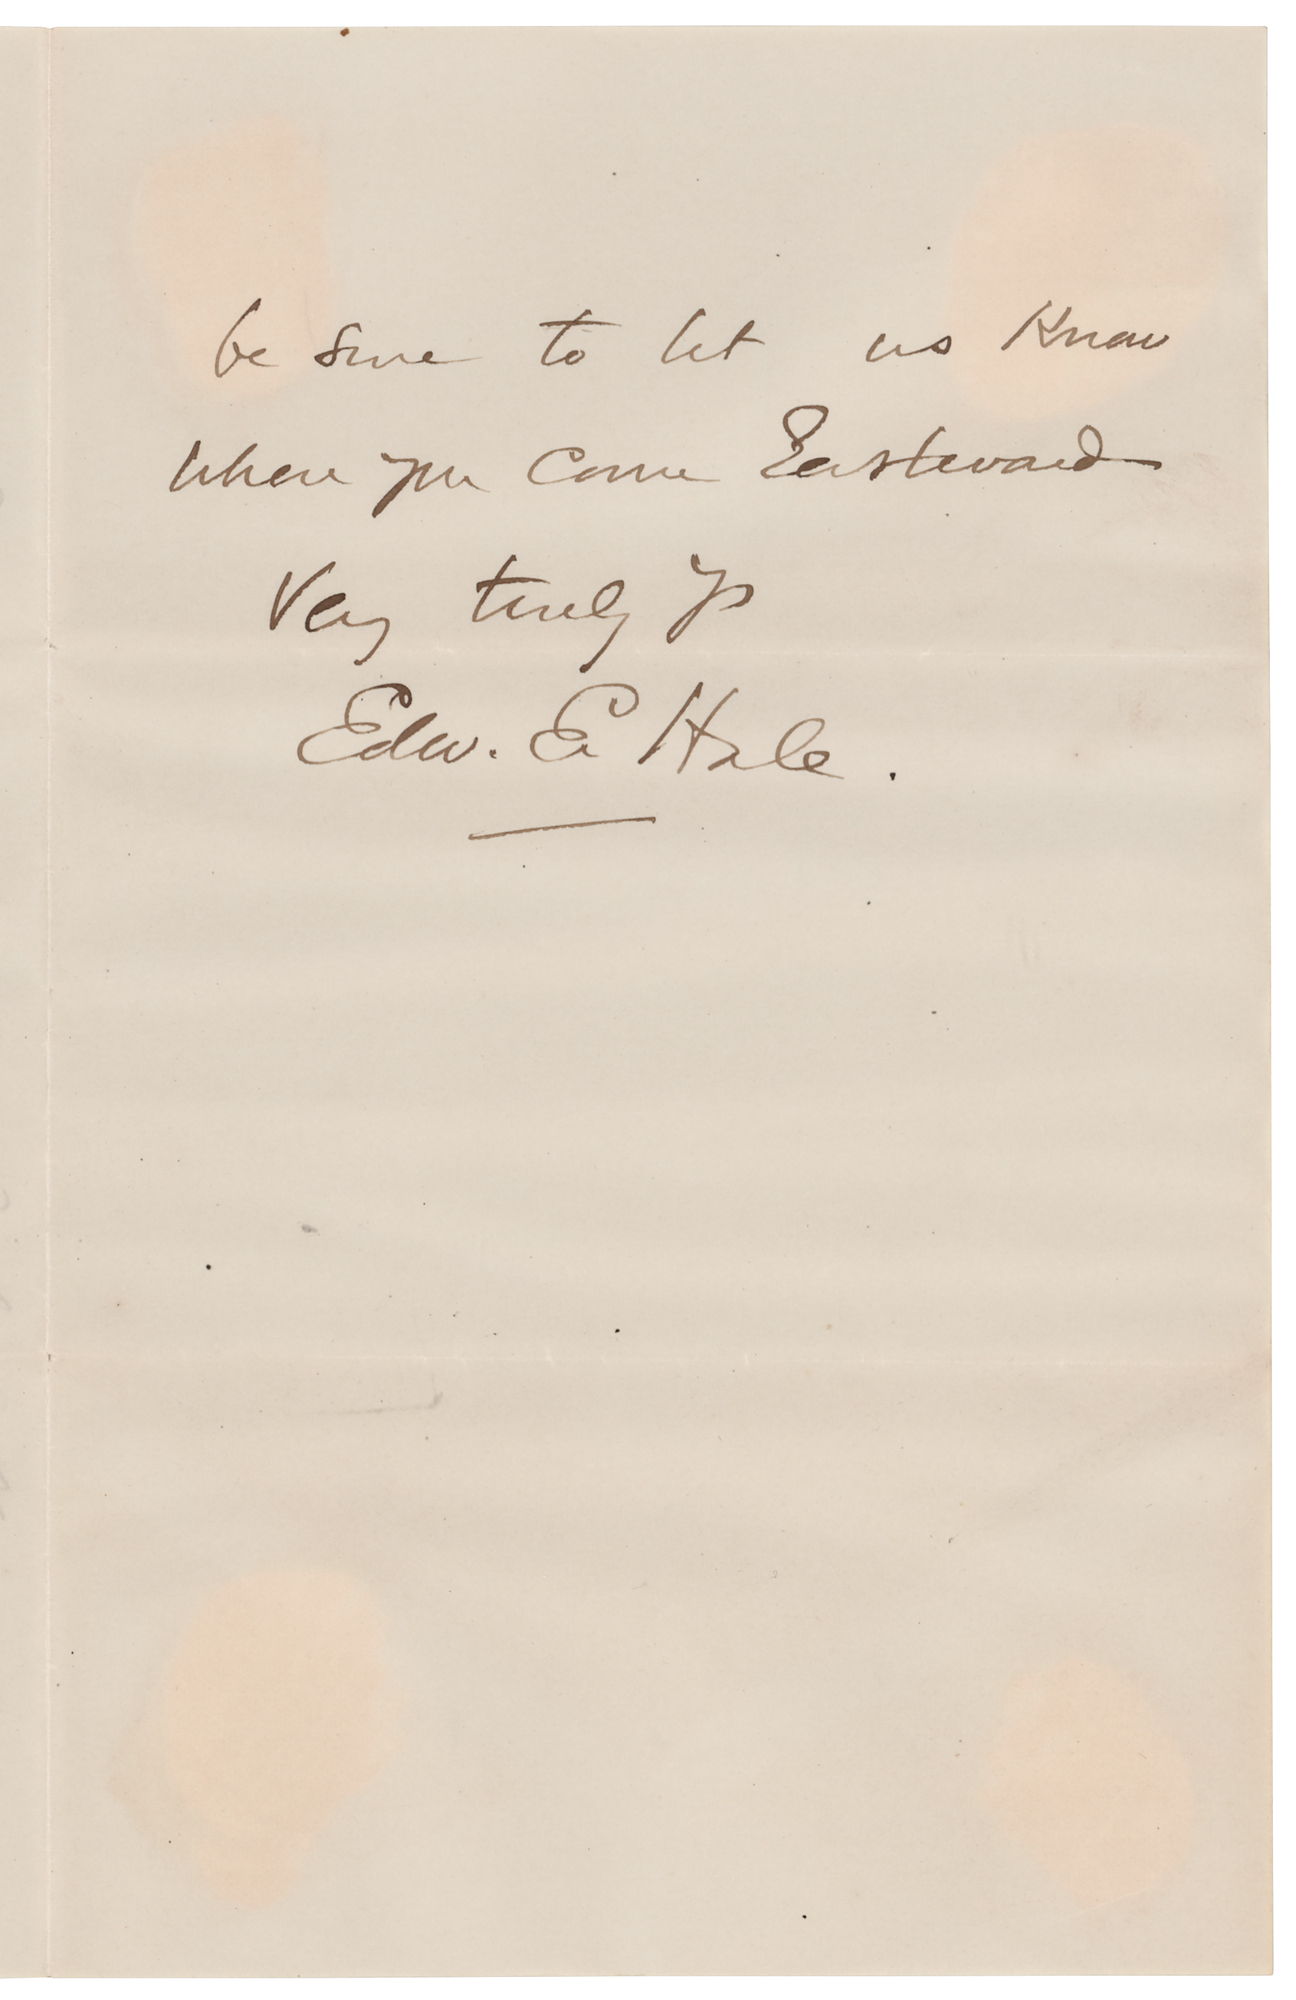 be sure to let us know
when you come Eastward
Very truly yrs
Edw. E Hale.